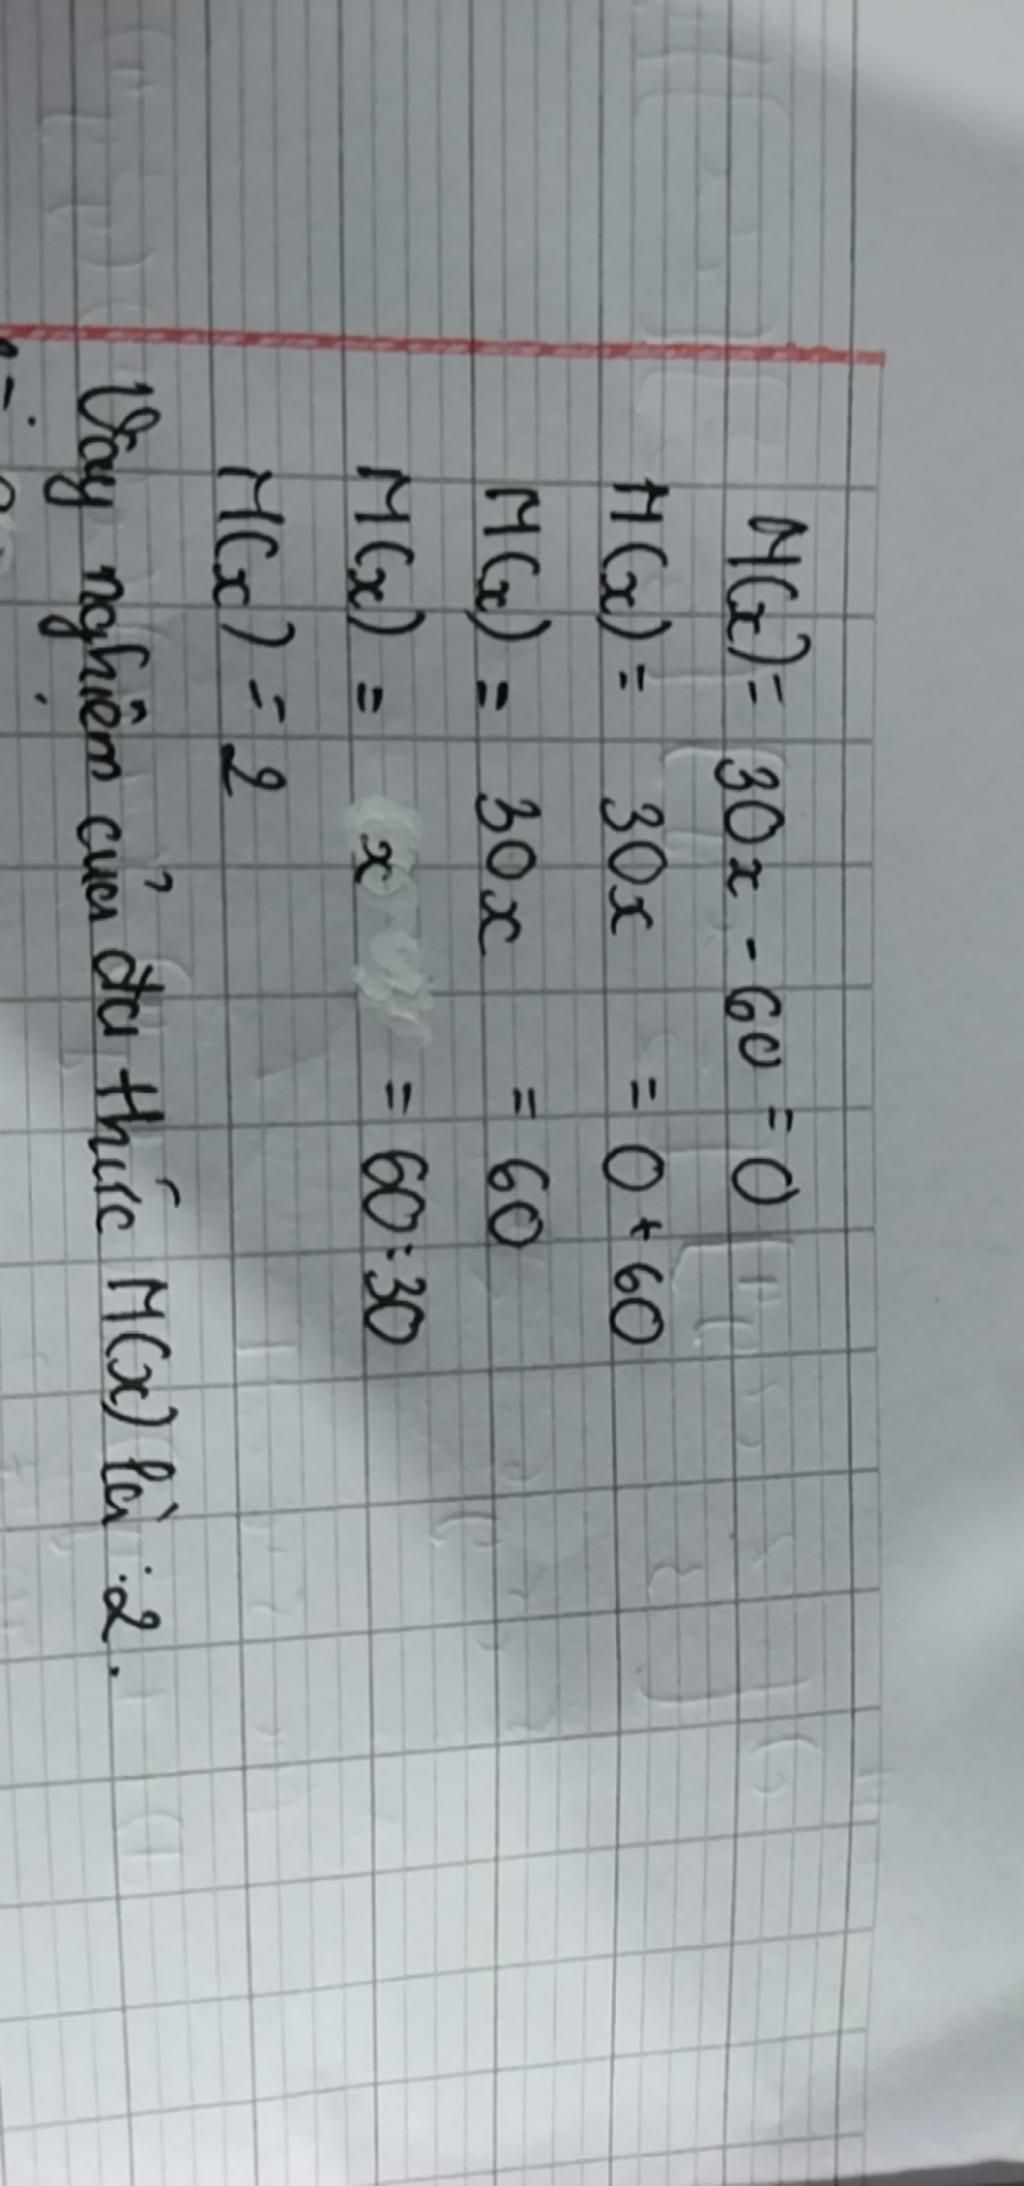 M(x) = 30x - 60 = 0
M(x) = 30x = 0 + 60
M(x) = 30x = 60
M(x) = x = 60 : 30
M(x) = 2
Vậy nghiệm của đa thức M(x) là : 2.